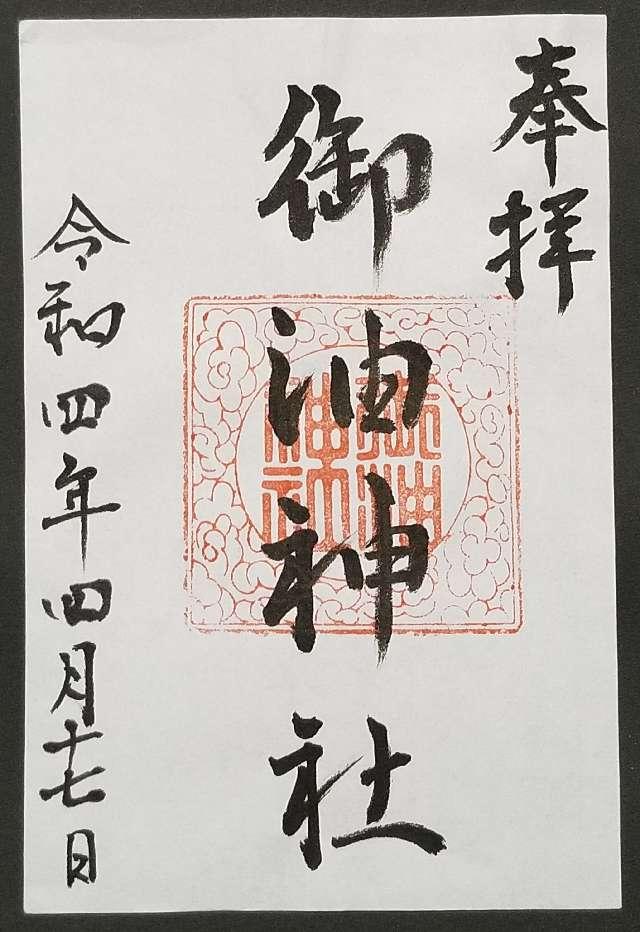 奉拝
御油神社
令和四年四月十七日